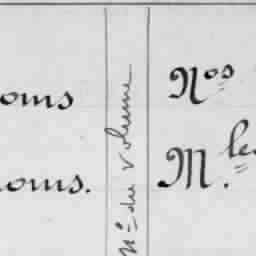 oms
oms.
Nº du Volume
Nos
M.les